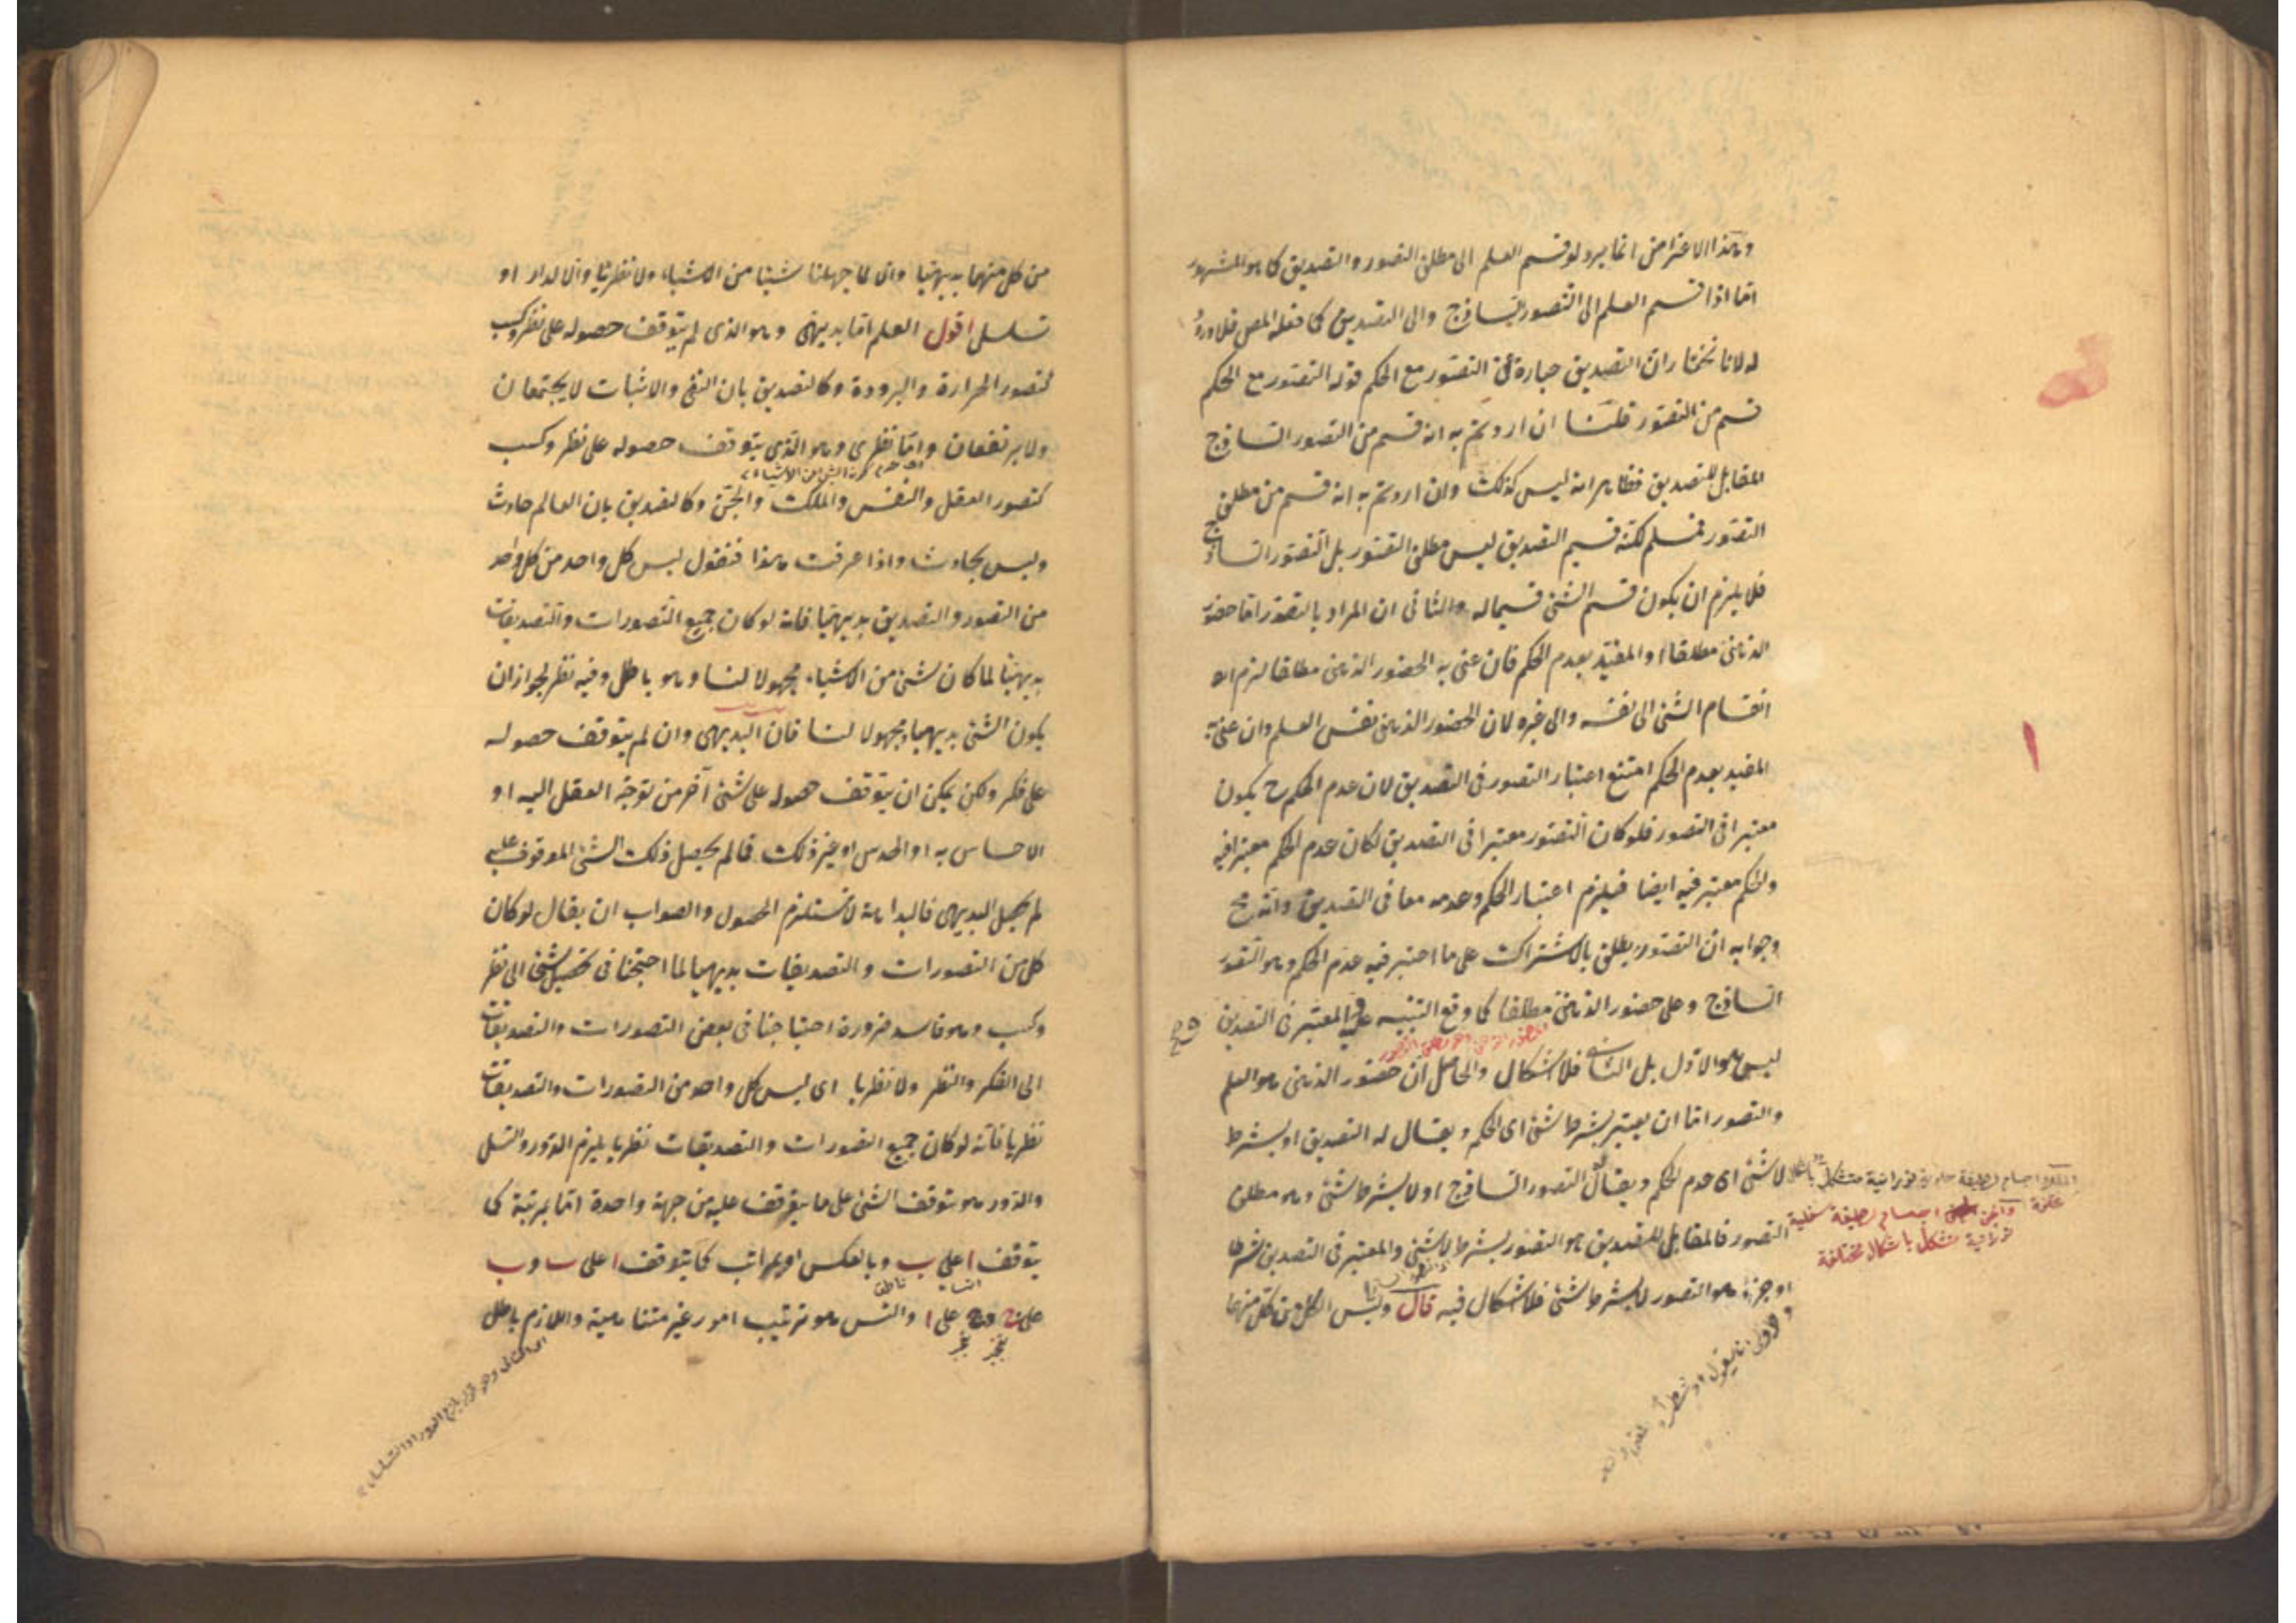 وهذا الاعتراض انما يرد لو قسم العلم الى مطلق التصور والتصديق كما هو المشهور
اما اذا قسم العلم الى التصور الساذج والى التصديق كما فعله المص فلا ورود
له لانا نختار ان التصديق عبارة عن التصور مع الحكم قوله التصور مع الحكم
قسم من التصور قلنا ان اردتم به انه قسم من التصور الساذج
المقابل للتصديق فظاهر انه ليس كذلك وان اردتم به انه قسم من مطلق
التصور فمسلم لكنه قسيم التصديق ليس مطلق التصور بل التصور الساذج
فلا يلزم ان يكون قسم الشئ قسيما له والثانى ان المراد بالتصور اما حضور
الذهنى مطلقا او المقيد بعدم الحكم فان عنى به الحضور الذهنى مطلقا لزم
انقسام الشئ الى نفسه والى غيره لان الحضور الذهنى نفس العلم وان عنى به
المقيد بعدم الحكم امتنع اعتبار التصور فى التصديق لان عدم الحكم ح يكون
معتبرا فى التصور فلو كان التصور معتبرا فى التصديق لكان عدم الحكم معتبرا فيه
والحكم معتبر فيه ايضا فيلزم اعتبار الحكم وعدمه معا فى التصديق وانه مح
وجوابه ان التصور يطلق بالاشتراك على ما اعتبر فيه عدم الحكم وهو التصور
الساذج وعلى حضور الذهنى مطلقا كما وقع التنبيه عليه والمعتبر فى التصديق
ليس هو الاول بل الثانى فلا اشكال والحاصل ان حضور الذهنى هو العلم
والتصور اما ان يعتبر بشرط شئ اى الحكم ويقال له التصديق او بشرط
لا شئ اى عدم الحكم ويقال له التصور الساذج او لا بشرط شئ وهو مطلق
التصور فالمقابل للتصديق هو التصور بشرط لا شئ والمعتبر فى التصديق شرطا
او جزءا هو التصور لا بشرط شئ فلا اشكال فيه قال وليس الكل من كل منهما
اجسام لطيفة نورانية متشكل
والجن اجسام لطيفة سفلية
تشكل باشكال مختلفة
من كل منهما بديهيا والا لما جهلنا شيئا من الاشياء ولا نظريا والا لدار او
تسلسل اقول العلم اما بديهى وهو الذى لم يتوقف حصوله على نظر وكسب
كتصور الحرارة والبرودة وكالتصديق بان النفى والاثبات لا يجتمعان
ولا يرتفعان واما نظرى وهو الذى يتوقف حصوله على نظر وكسب
كتصور العقل والنفس والملك والجن وكالتصديق بان العالم حادث
وليس بحادث واذا عرفت هذا فنقول ليس كل واحد من كل واحد
من التصور والتصديق بديهيا فانه لو كان جميع التصورات والتصديقات
بديهيا لما كان شئ من الاشياء مجهولا لنا وهو باطل وفيه نظر لجواز ان
يكون الشئ بديهيا ومجهولا لنا فان البديهى وان لم يتوقف حصوله
على فكر ولكن يمكن ان يتوقف حصوله على شئ آخر من توجه العقل اليه او
الاحساس به او الحدس او غير ذلك فما لم يحصل ذلك الشئ الموقوف عليه
لم يحصل البديهى فالبداهة لا تستلزم الحصول والصواب ان يقال لو كان
كل من التصورات والتصديقات بديهيا لما احتجنا فى تحصيل شئ الى نظر
وكسب وهو فاسد ضرورة احتياجنا فى بعض التصورات والتصديقات
الى الفكر والنظر ولا نظريا اى ليس كل واحد من التصورات والتصديقات
نظريا فانه لو كان جميع التصورات والتصديقات نظريا يلزم الدور والتسلسل
والدور هو توقف الشئ على ما يتوقف عليه من جهة واحدة اما بمرتبة كما
يتوقف ا على ب وبالعكس او بمراتب كما يتوقف ا على ب وب
على ج وج على ا والتس هو ترتيب امور غير متناهية واللازم باطل